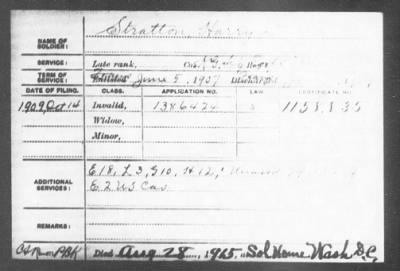 NAME OF SOLDIER: Stratton Harry
SERVICE: Late rank, Co. Reg't
TERM OF SERVICE: Enlisted June 5, 1907 Discharged
DATE OF FILING. CLASS. APPLICATION NO. LAW. CERTIFICATE NO.
1909, Oct 14 Invalid, 1386424 1158835
Widow,
Minor,
ADDITIONAL SERVICES: E 18, L 3, G 10, H 12,
E 2 US Cav
REMARKS:
Died Aug 28, 1915, Sol Home Wash D.C.